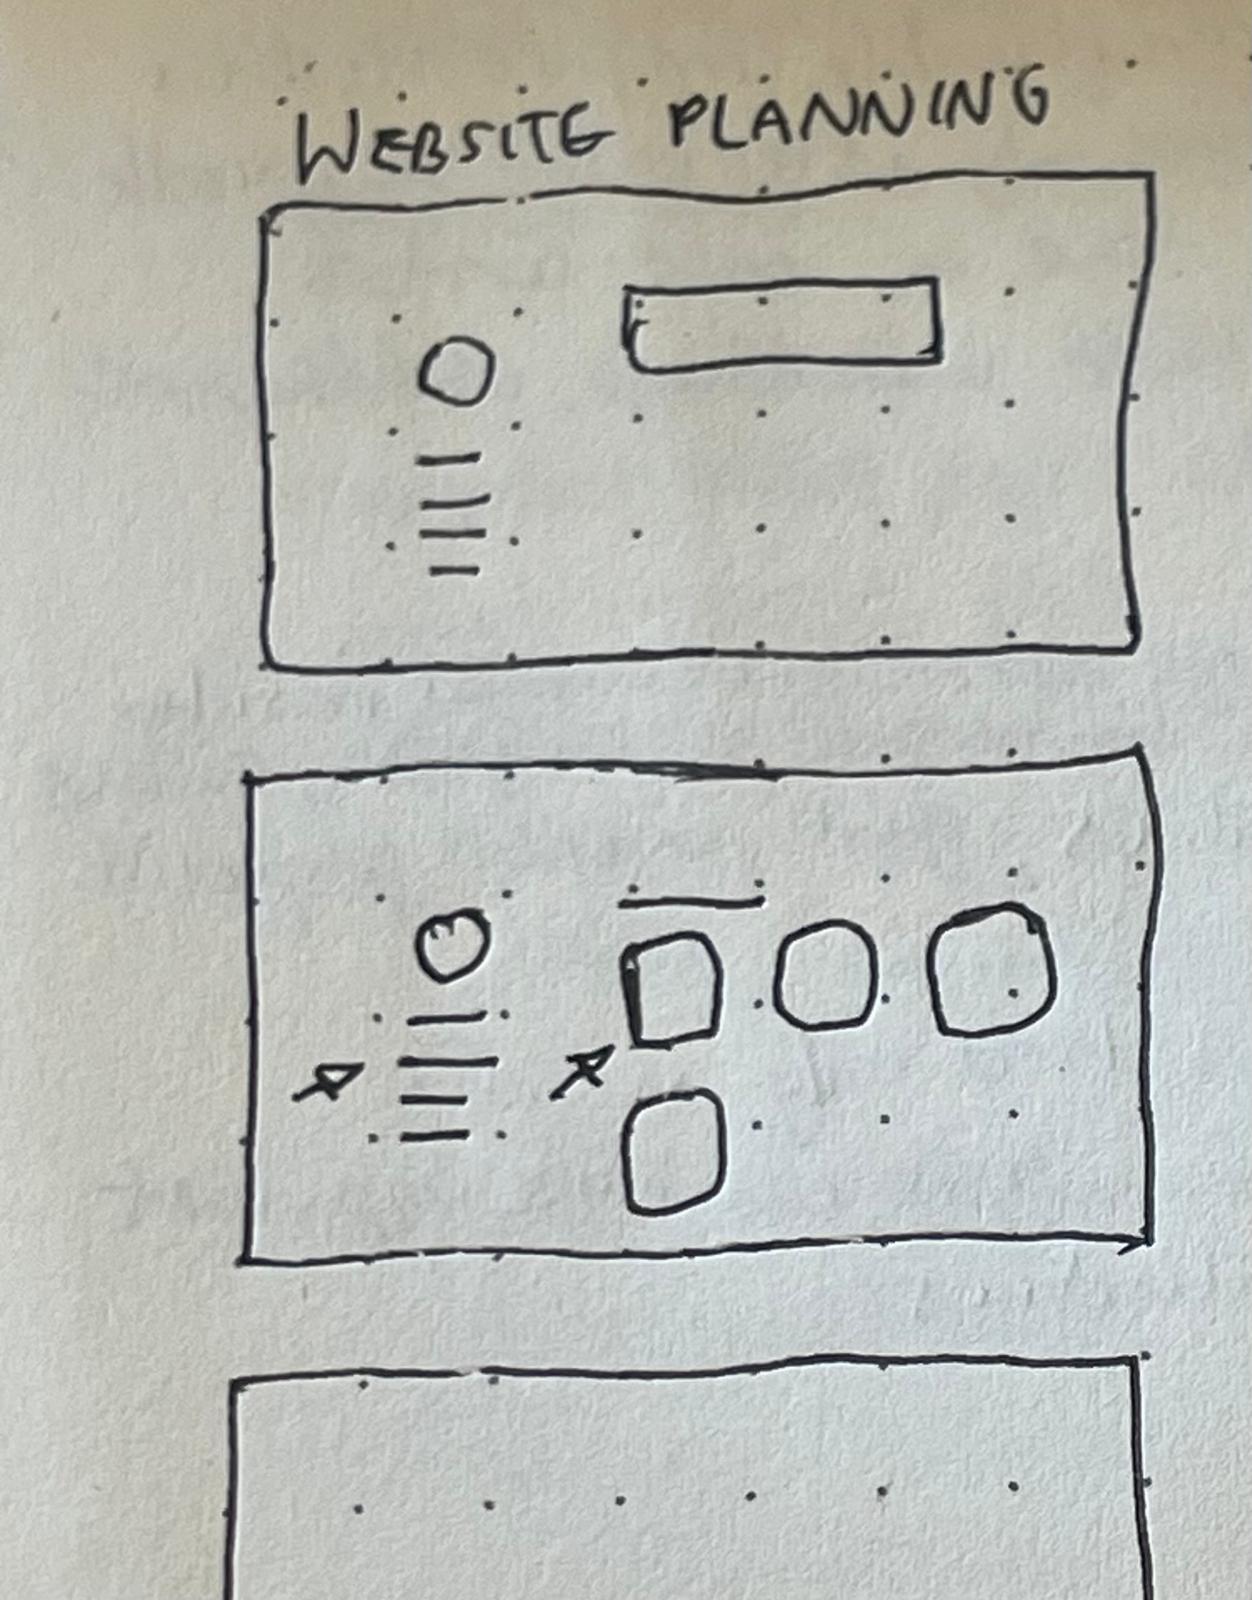 WEBSITE PLANNING